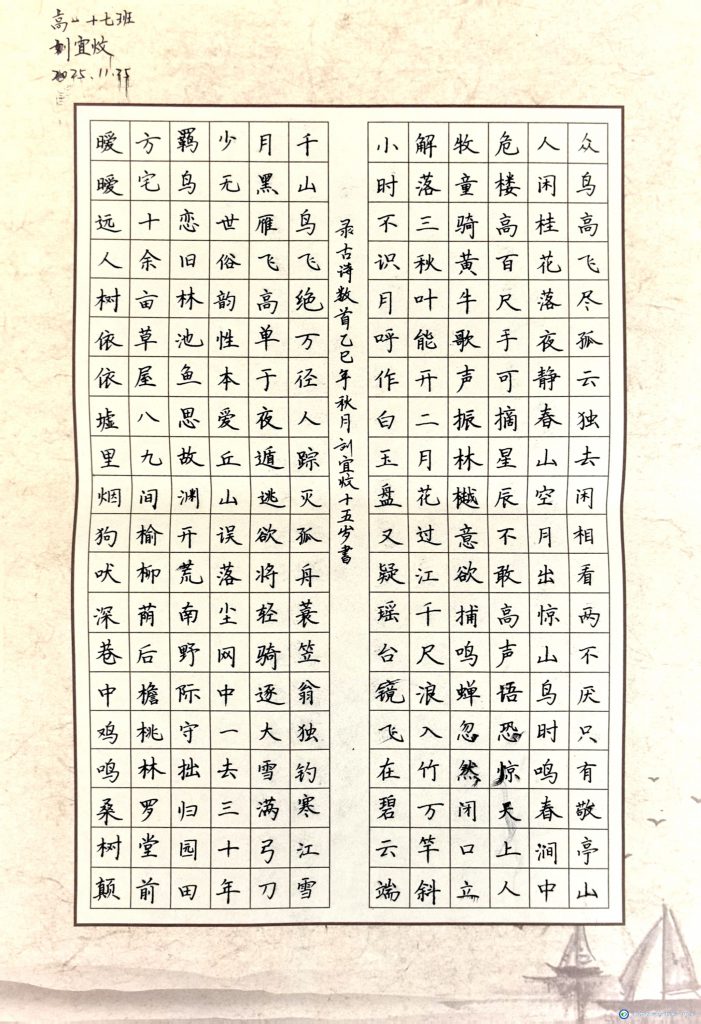 高一十七班
刘宜炆
2025.11.25
众鸟高飞尽孤云独去闲相看两不厌只有敬亭山
人闲桂花落夜静春山空月出惊山鸟时鸣春涧中
危楼高百尺手可摘星辰不敢高声语恐惊天上人
牧童骑黄牛歌声振林樾意欲捕鸣蝉忽然闭口立
解落三秋叶能开二月花过江千尺浪入竹万竿斜
小时不识月呼作白玉盘又疑瑶台镜飞在碧云端
录古诗数首乙巳年秋月刘宜炆十五岁书
千山鸟飞绝万径人踪灭孤舟蓑笠翁独钓寒江雪
月黑雁飞高单于夜遁逃欲将轻骑逐大雪满弓刀
少无世俗韵性本爱丘山误落尘网中一去三十年
羁鸟恋旧林池鱼思故渊开荒南野际守拙归园田
方宅十余亩草屋八九间榆柳荫后檐桃林罗堂前
暧暧远人树依依墟里烟狗吠深巷中鸡鸣桑树颠